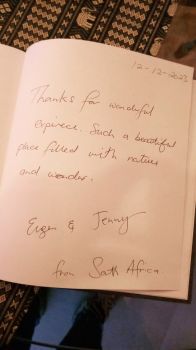 12-12-2023
Thanks for wonderful
expirece. Such a beautiful
place filled with nature
and wonder.
& Jenny
from South Africa